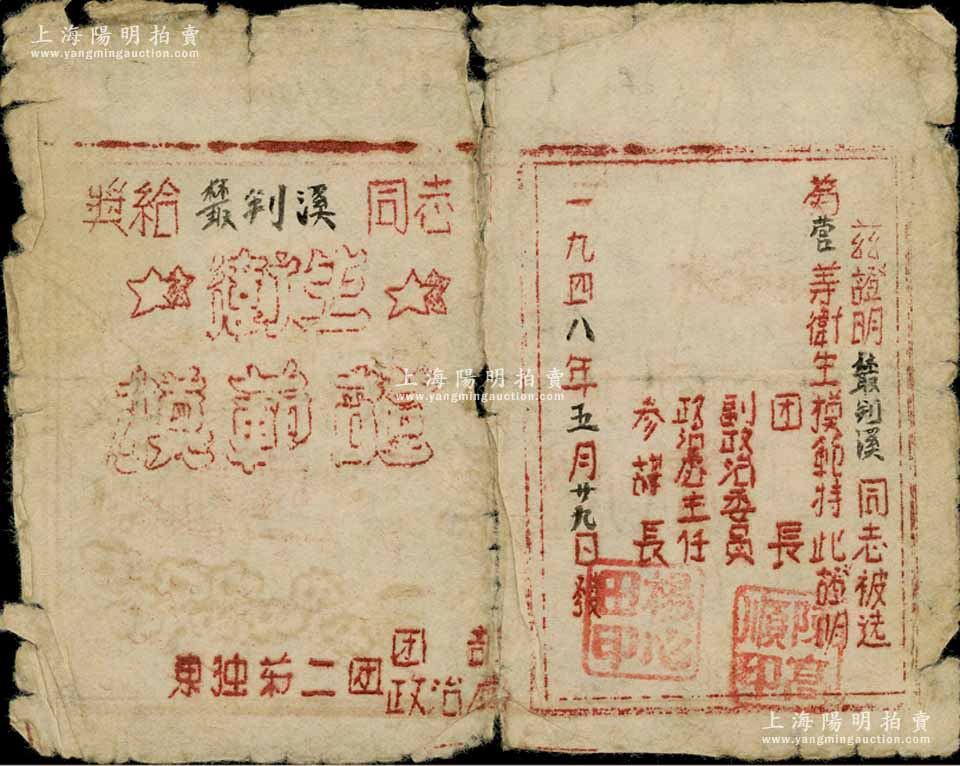 上海陽明拍賣
www.yangmingauction.com
獎給 叢判溪 同志
衛生
模範證
团
政治
東独第二团
兹證明叢判溪同志被选
為营等衛生模範特此證明
团長
副政治委員
政治處主任
参謀長
一九四八年五月廿九日發
印
田印
上海陽明拍賣
www.yangmingauction.com
上海陽明拍賣
www.yangmingauction.com